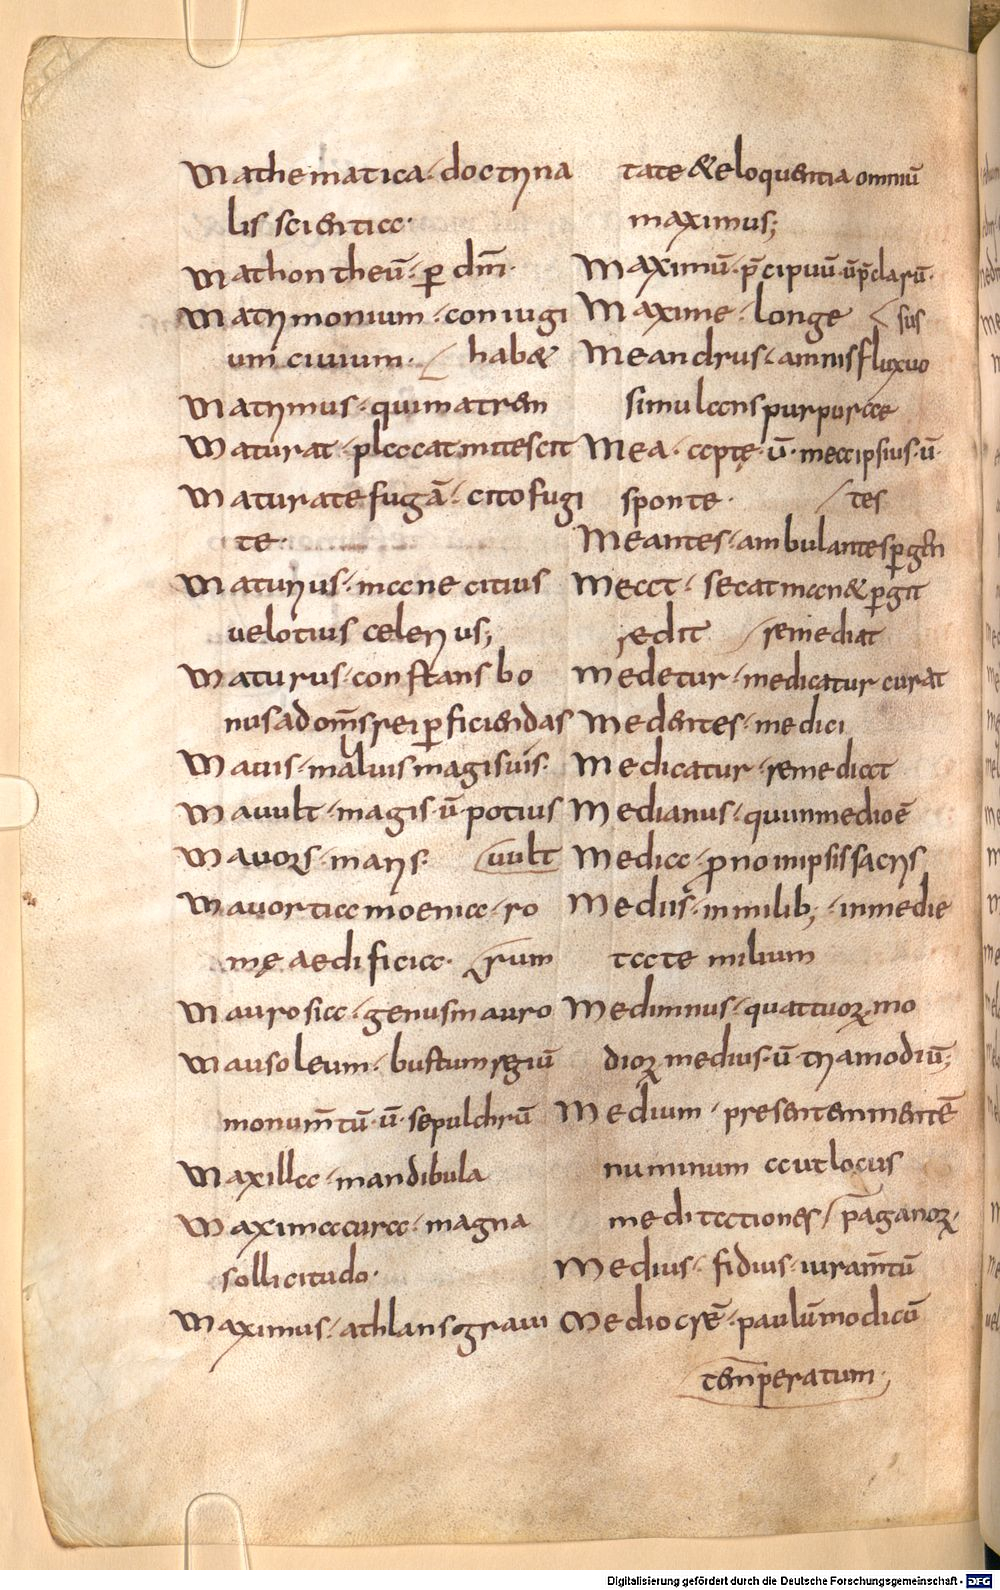 Mathematica · doctrina
lis scientia ·
Mathontheū · ꝑ dm̄ ·
Matrimonium · coniugi
um ciuium · / hab&
Matrimus · quimatrem
Maturat · placat mitescit
Maturate fugā · cito fugi
te ·
Maturius · mane citius
uelotius celerius;
Maturus · constans bo
nus ad om̄s rei ꝑficiendas
Mauis · maluis magis uis ·
Mauult · magis · ū · potius
Mauors · mars · / uult
Mauortia moenia · ro
mę aedificia · / rum
Maurosica · genus mauro
Mausoleum · bustum regiū
monum̄tū · ū · sepulchrū
Maxilla · mandibula
Maxima cura · magna
sollicitudo ·
Maximus · athlans graui
tate & eloquentia omniū
maximus;
Maximū · p̄cipuū · ū · p̄clarū ·
Maxime · longe / sus
Meandrus · amnis fluxuo
simulans purpurae
Mea · aptę · ū · mea ipsius · ū ·
sponte · / tes
Meantes · ambulantes ꝑgen
Meat · secat man& ꝑgit
redit / remediat
Medetur · medicatur curat
Medentes · medici
Medicatur · remediat
Medianus · qui in medio ē
Media · pro nom ipsis sacris
Mediis · in milib; · in medie
tate milium
Medimnus · quattuorꝝ mo
dioꝝ medius · ū · tria modiū;
Medium · presentem mentē
numinum aut locus
meditationes / paganoꝝ ·
Medius · fidius · iuram̄tū
Mediocrē · paulū modicū
temperatum ·
Digitalisierung gefördert durch die Deutsche Forschungsgemeinschaft - DFG